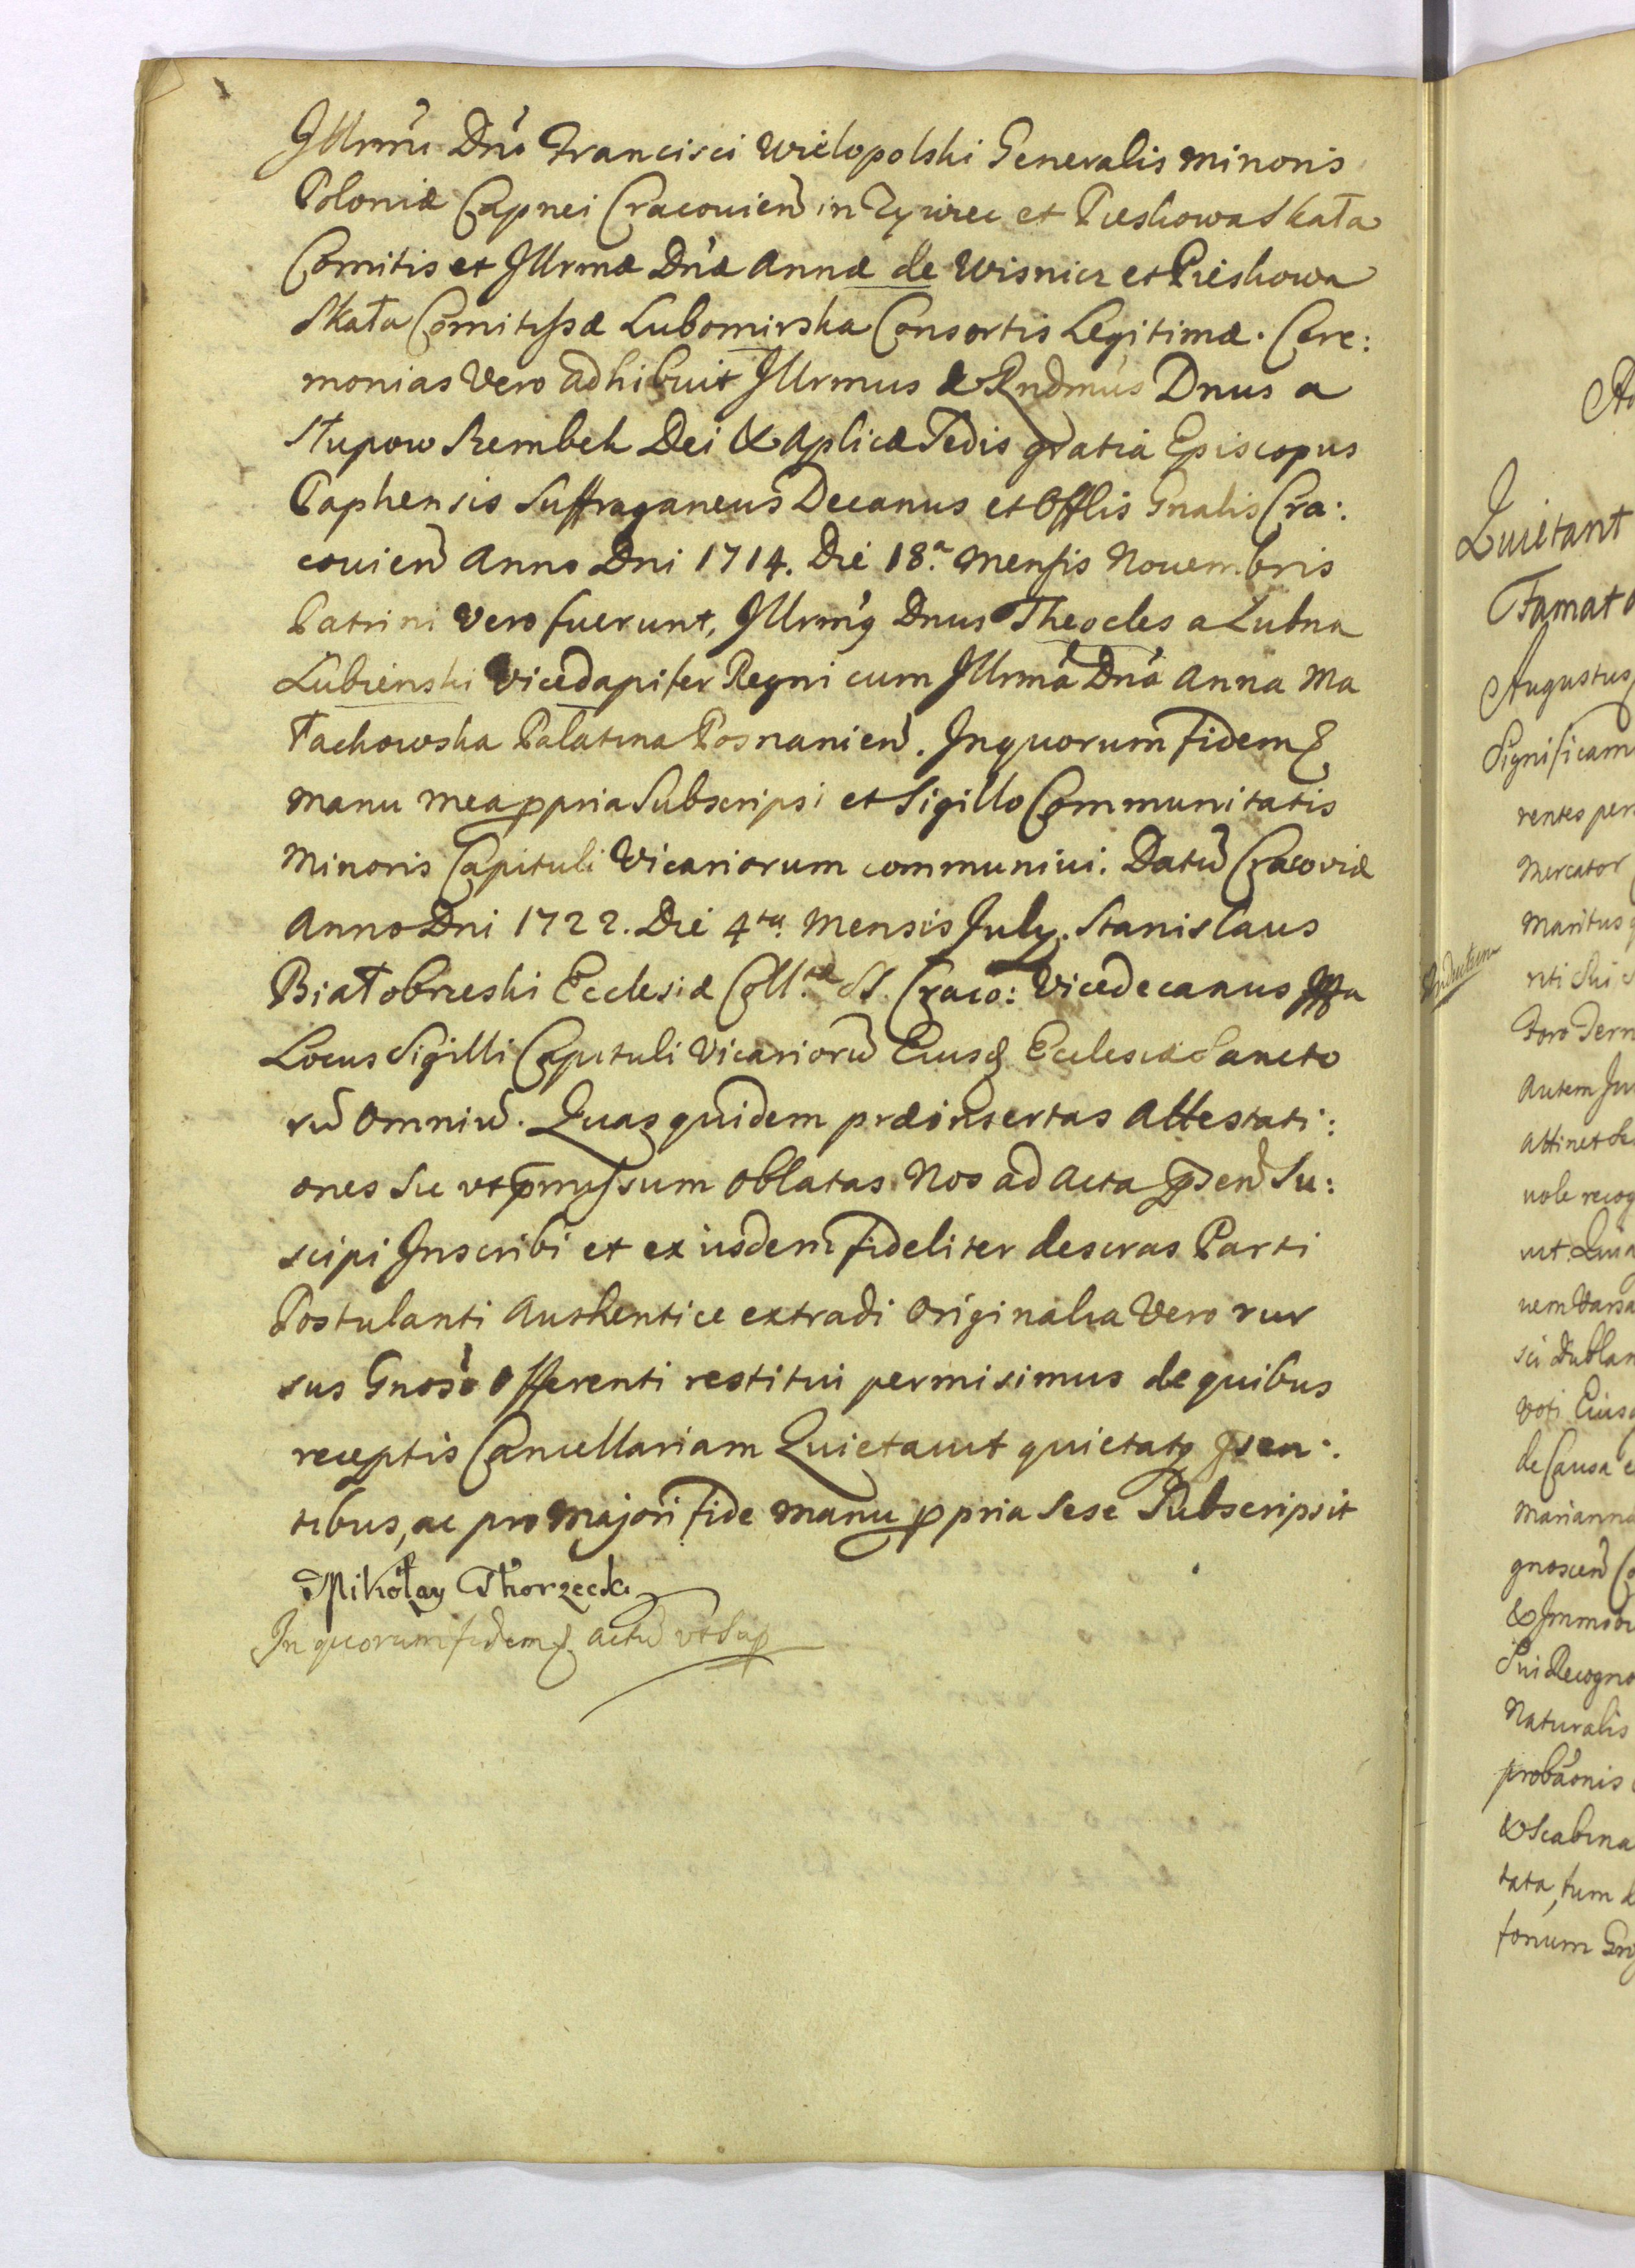 Jllrmi Dni Francisci Wielopolski Generalis minoris
Poloniæ Capnei Cracouien in Zywiec et Pieskowa Skała
Comitis et Jllrmæ Dnæ Annæ de Wisnicz et Pieskowa
Skała Comitissæ Lubomirska Consortis Legitimæ. Cære:
monias Vero adhibuit Jllrmus & Rndmus Dnus a
Słupow Szembek Dei & Aplicæ Sedis gratia Episcopus
Paphensis Suffraganeus Decanus et Offlis Gnalis Cra:
couien Anno Dni 1714. Die 18.a Mensis Nouembris
Patrini Vero fuerunt, Jllrmg Dnus Theocles a Lubna
Lubienski Vicedapifer Regni cum Jllrma Dna Anna Ma
łachowska Palatina Posnanien. In quorum fidem &
manu mea ppria Subscripsi et Sigillo Communitatis
Minoris Capituli Vicariorum communiui. Datu Cracoviæ
Anno Dni 1722. Die 4ta Mensis July. Stanislaus
Białobrzeski Ecclesiæ Coll.tæ SS. Craco: Vicedecanus
Locus Sigilli Capituli Vicarioru Eiusq Ecclesiæ Sancto
ru Omniu. Quas quidem præinsertas Attestati:
ones Sic vt pmissum Oblatas Nos ad Acta psen Su:
scipi Inscribi et ex iisdem fideliter descras Parti
Postulanti Authentice extradi Originalia Vero rur
sus Gnoso Offerenti restitui permisimus de quibus
receptis Cancellariam Quietauit quietatq psen:
tibus, ac pro Majori fide manu ppria Sese Subscripsit
Mikołay Tchorzecki
In quorum fidem & actu vt Sup
Quietant
Famat
Augustus
Significam
rentes per
Mercator
Maritus
nti Sui
foro
Autem Ju
Attinet
nole recog
uit
uem Varsa
sci Dublan
voti Eius
de Causa
Marianna
gnoscen
& Jmmobi
Sui Recogno
Naturalis
probaonis
& Scabina
tata, tum